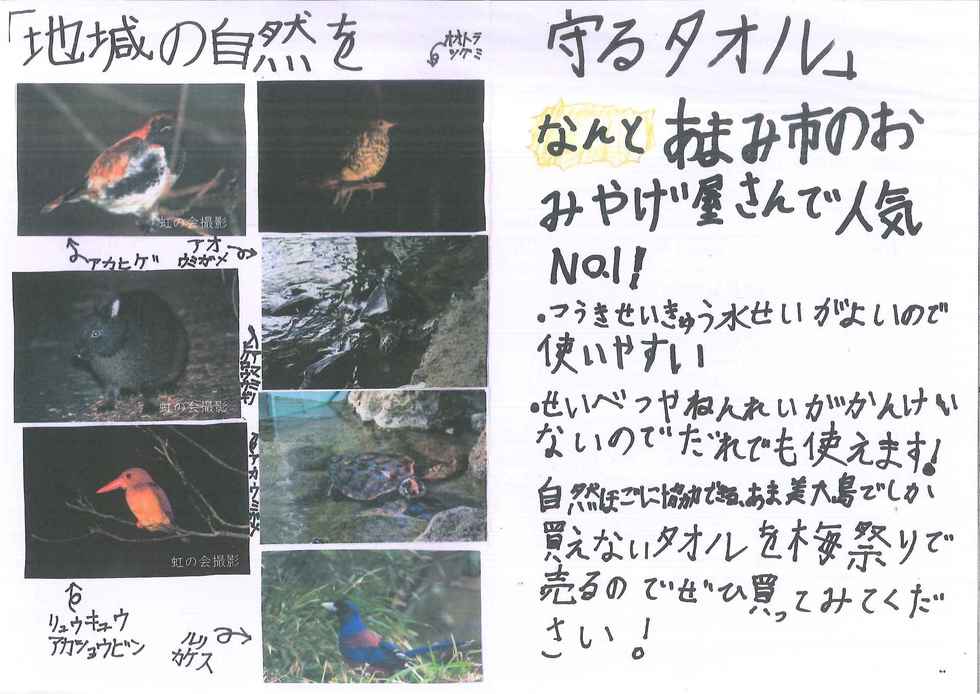 「地域の自然を守るタオル」
オオトラ
ツグミ
虹の会撮影
アカヒゲ
アオ
ウミガメ
虹の会撮影
アカウミガメ
虹の会撮影
リュウキュウ
アカショウビン
ルリ
カケス
なんと あまみ市のお
みやげ屋さんで人気
NO.1!
・つうきせいきゅう水せいがよいので
使いやすい
・せいべつやねんれいがかんけい
ないのでだれでも使えます!
自然ほごに協力できる、あま美大島でしか
買えないタオルを梅祭りで
売るのでぜひ買ってみてくだ
さい!